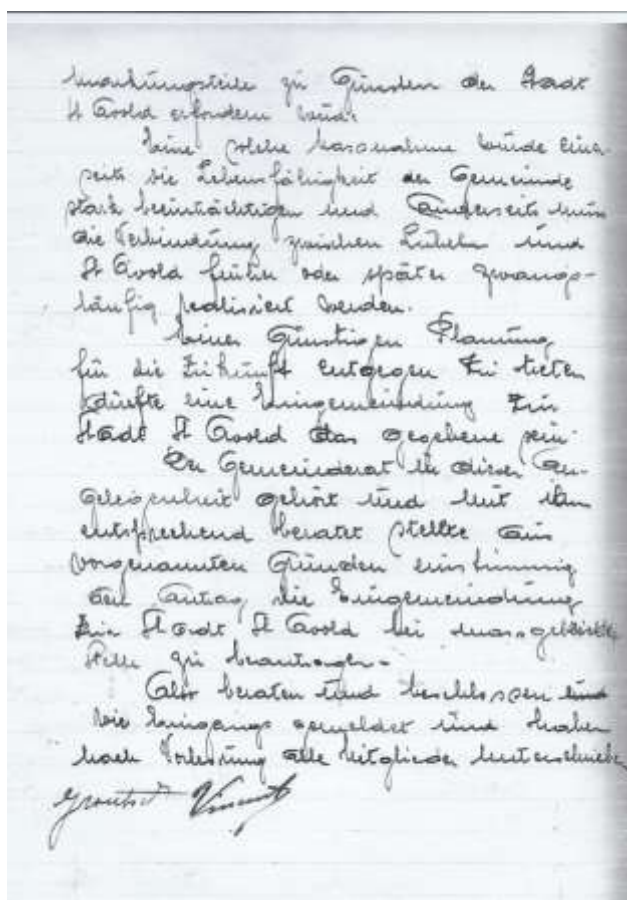 markungsteile zu Günsten der Stadt
St Avold erfordern würde.
Eine solche Massnahme würde einer-
seits die Lebensfähigkeit der Gemeinde
stark beeinträchtigen und Anderseits muss
die Verbindung zwischen Lübeln und
St Avold früher oder später zwangs-
läufig realisiert werden.
Einer Günstigen Planung
für die Zukünft entgegen zu treten
dürfte eine Eingemeindung zur
Stadt St Avold das gegebene sein.
Der Gemeinderat in dieser An-
gelegenheit gehört und mit ihm
entsprechend beratet stellte aus
vorgenannten Gründen einstimmig
den Antrag die Eingemeindung
zur Stadt St Avold bei
Stelle zu beantragen.
Also beraten und beschlossen und
wie Eingangs gemeldet und haben
nach Vorlesung alle Mitglieder unterschrieben
Vincent